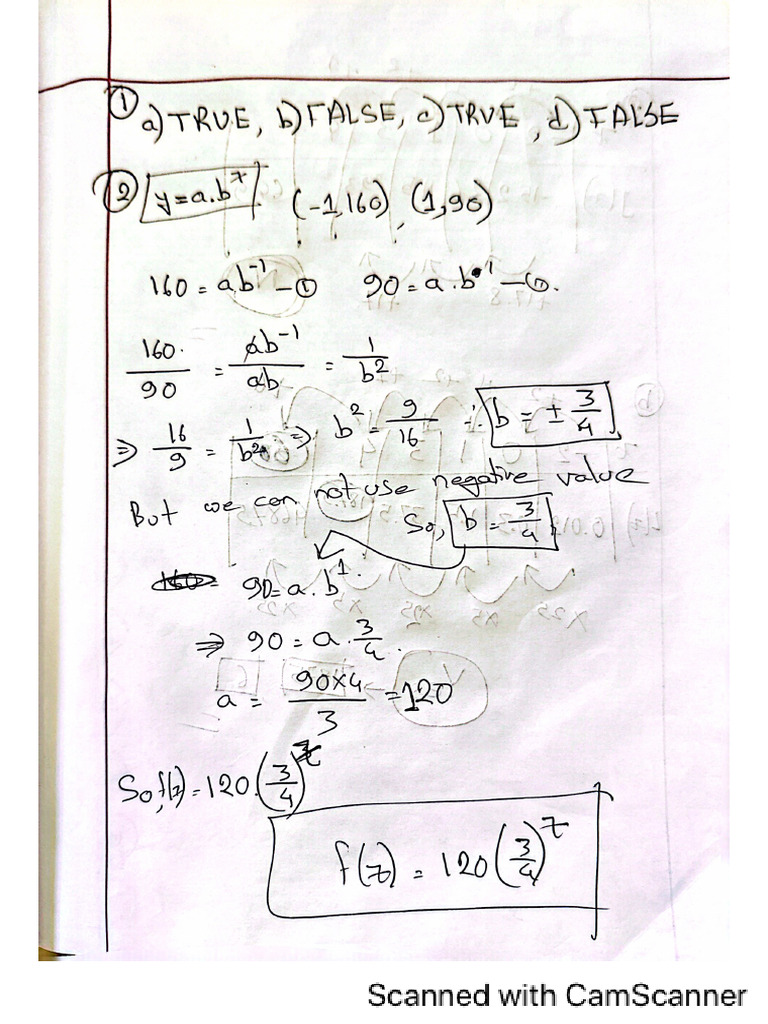 ① a) TRUE, b) FALSE, c) TRUE, d) FALSE
② y=a.b^x (-1,160), (1,90)
160 = ab^-1 — ① 90 = a.b^1 — ②.
160/90 = ab^-1/ab = 1/b^2
⇒ 16/9 = 1/b^2 ⇒ b^2 = 9/16 ∴ b = ± 3/4
But we can not use negative value
So, b = 3/4
90=a.b^1.
⇒ 90 = a.3/4.
a = 90×4/3 = 120
So, f(z) = 120.(3/4)^z
f(z) = 120(3/4)^z
Scanned with CamScanner